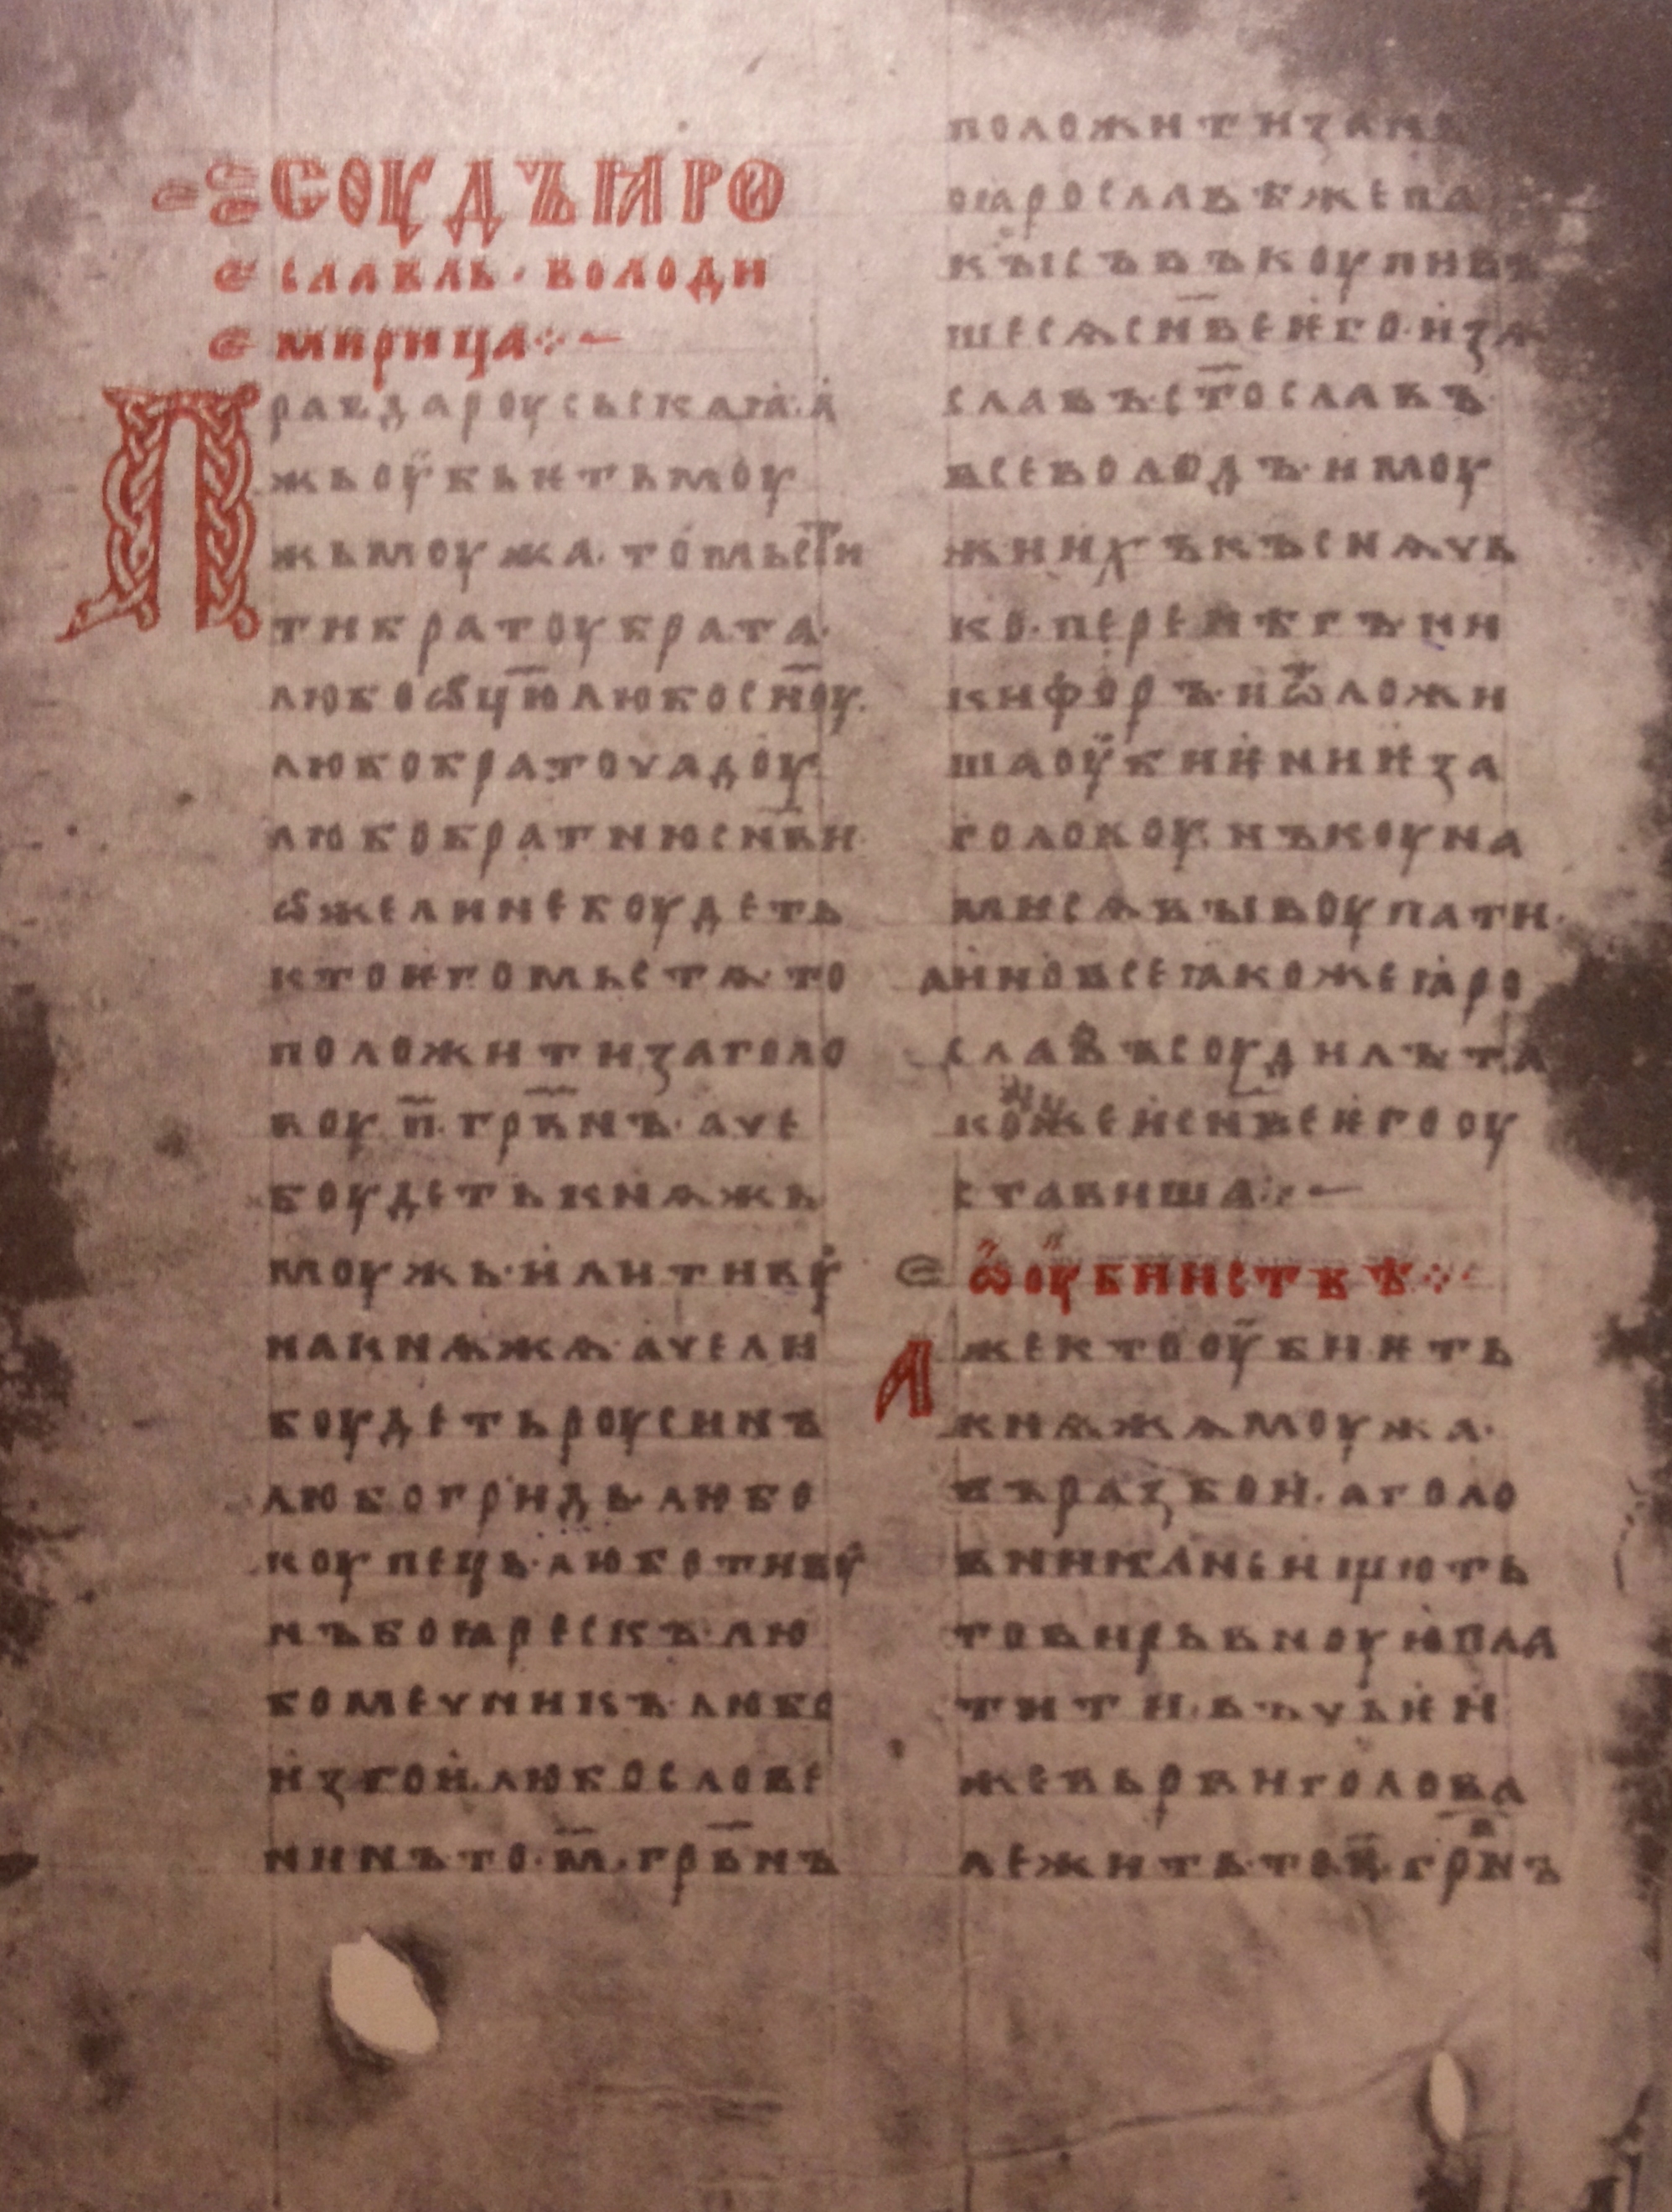 СОУДЪ ꙖРО
СЛАВЛЬ · ВОЛОДИ
МИРИЦА ⁘ —
Правда роусьскаꙗ · а
жь оубьѥть моу
жь моужа · то мьсти
ти братоу брата ·
любо ѡц҃ю любо сн҃оу ·
любо братоучадоу
любо братню сн҃ви
ѡже ли не боудеть
кто ѥго мьстѧ · то
положити за голо
воу · п҃ · грв҃нъ · аче
боудеть кнѧжь
моужь · или тиву
на кнѧжѧ · аче ли
боудеть роусинъ
любо гридь · любо
коупець · любо тиву
нъ боꙗрескъ · лю
бо мечникъ · любо
изгои · любо слове
нинъ то · м҃ · грв҃нъ
положити за нь
о ꙗрославѣ же па
кы съвъкоупивъ
шесѧ сн҃ве ѥго · изѧ
славъ · ст҃ославъ ·
всеволодъ · и моу
жи ихъ къснѧчь
ко · перенѣгъ · ни
кифоръ · и ѿложи
ша оубиѥниѥ за
голову · нъ коуна
ми сѧ выкоупати ·
а ино все ꙗкоже ꙗро
славъ соудилъ · та
коже и сн҃ве ѥго оу
ставиша ⁘ —
Ѡ ОУБИИСТВѢ ⁘
Аже кто оубиѥть
кнѧжѧ моужа ·
въ разбои · а голо
вникa не ищють
то вирьвноую пла
тити · въ чьѥи
же вьрви голова
лежить · то п҃ · грв҃нъ